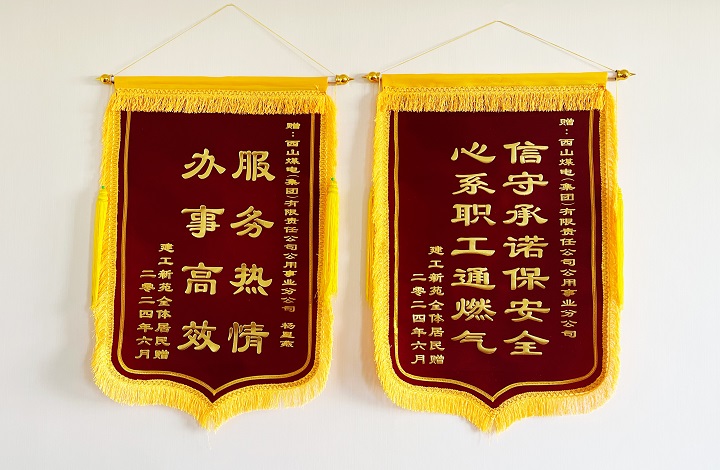 赠：西山煤电（集团）有限责任公司公用事业分公司 杨昱燕
服务热情
办事高效
建工新苑全体居民赠
二零二四年六月
赠：西山煤电（集团）有限责任公司公用事业分公司
信守承诺保安全
心系职工通燃气
建工新苑全体居民赠
二零二四年六月